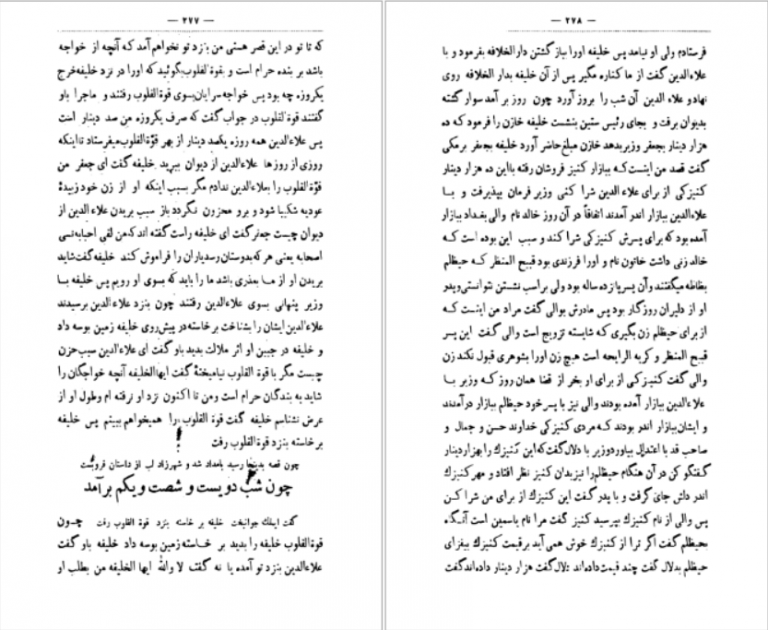 — ۲۷۷ —
که تا تو در این قصر هستی من نزد تو نخواهم آمد که آنچه از خواجه
باشد بر بنده حرام است و بقوة القلوب بگوئید که اورا در نزد خلیفه خرج
یکروزه چه بود پس خواجه سرایان بسوی قوة القلوب رفتند و ماجرا باو
گفتند قوة القلوب در جواب گفت که صرف یکروزه من صد دینار است
پس علاءالدین همه روزه یکصد دینار از بهر قوة القلوب میفرستاد تا اینکه
روزی از روز ها علاءالدین از دیوان ببرید خلیفه گفت ای جعفر من
قوة القلوب را بعلاءالدین ندادم مگر بسبب اینکه او از زن خود زبیدهٔ
عودیه شکیبا شود و برو محزون نگردد باز سبب بریدن علاءالدین از
دیوان چیست جعفر گفت ای خلیفه راست گفته اند که من لقی احبابه نسی
اصحابه یعنی هر که بدوستان رسد یاران را فراموش کند خلیفه گفت شاید
بریدن او از ما بعذری باشد ما را باید که بسوی او رویم پس خلیفه با
وزیر پنهانی بسوی علاءالدین رفتند چون بنزد علاءالدین برسیدند
علاءالدین ایشان را بشناخت برخاسته در پیش روی خلیفه زمین بوسه داد
و خلیفه در جبین او اثر ملالت بدید باو گفت ای علاءالدین سبب حزن
چیست مگر با قوة القلوب نیامیختهٔ گفت ایها الخلیفه آنچه خواجگان را
شاید به بندگان حرام است و من تا اکنون نزد او نرفته ام و طول او از
عرض نشناسم خلیفه گفت قوة القلوب را همیخواهم ببینم پس خلیفه
برخاسته بنزد قوة القلوب رفت
چون قصه بدینجا رسید بامداد شد و شهرزاد لب از داستان فروبست
چون شب دویست و شصت و یکم برآمد
گفت ایملک جوانبخت خلیفه بر خاسته بنزد قوة القلوب رفت چون
قوة القلوب خلیفه را بدید بر خاسته زمین بوسه داد خلیفه باو گفت
علاءالدین بنزد تو آمده یا نه گفت لا والله ایها الخلیفه من بطلب او
— ۲۷۸ —
فرستادم ولی او نیامد پس خلیفه اورا بباز گشتن دارالخلافه بفرمود و با
علاءالدین گفت از ما کناره مگیر پس از آن خلیفه بدار الخلافه روی
نهاد و علاء الدین آن شب را بروز آورد چون روز بر آمد سوار گشته
بدیوان برفت و بجای رئیس ستین بنشست خلیفه خازن را فرمود که ده
هزار دینار بجعفر وزیر بدهد خازن مبلغ حاضر آورد خلیفه بجعفر برمکی
گفت قصد من اینست که ببازار کنیز فروشان رفته با این ده هزار دینار
کنیزکی از برای علاء الدین شرا کنی وزیر فرمان بپذیرفت و با
علاءالدین ببازار اندر آمدند اتفاقاً در آن روز خالد نام والی بغداد ببازار
آمده بود که برای پسرش کنیزکی شرا کند و سبب این بوده است که
خالد زنی داشت خاتون نام و اورا فرزندی بود قبیح المنظر که حبظلم
بظاظه میگفتند و آن پسر پانزده ساله بود ولی بر اسب نشستن نتوانستی و پدر
او از دلیران روزگار بود پس مادرش بوالی گفت مراد من اینست که
از برای حبظلم زن بگیری که شایسته تزویج است والی گفت این پسر
قبیح المنظر و کریه الرایحه است هیچ زن اورا بشوهری قبول نکند زن
والی گفت کنیزکی از برای او بخر از قضا همان روز که وزیر با
علاءالدین ببازار آمده بودند والی نیز با پسر خود حبظلم ببازار درآمدند
و ایشان ببازار اندر بودند که مردی کنیزکی خداوند حسن و جمال و
صاحب قد با اعتدال بیاورد وزیر با دلال گفت که این کنیزک را بهزار دینار
گفتگو کن در آن هنگام حبظلم را نیز بدان کنیز نظر افتاد و مهر کنیزک
اندر دلش جای گرفت و با پدر گفت این کنیزک از برای من شرا کن
پس والی از نام کنیزک بپرسید کنیز گفت مرا نام یاسمین است آنگاه
بحبظلم گفت اگر ترا از کنیزک خوش همی آید بر قیمت کنیزک بیفزای
حبظلم بدلال گفت چند قیمت داده اند دلال گفت هزار دینار داده اند گفت